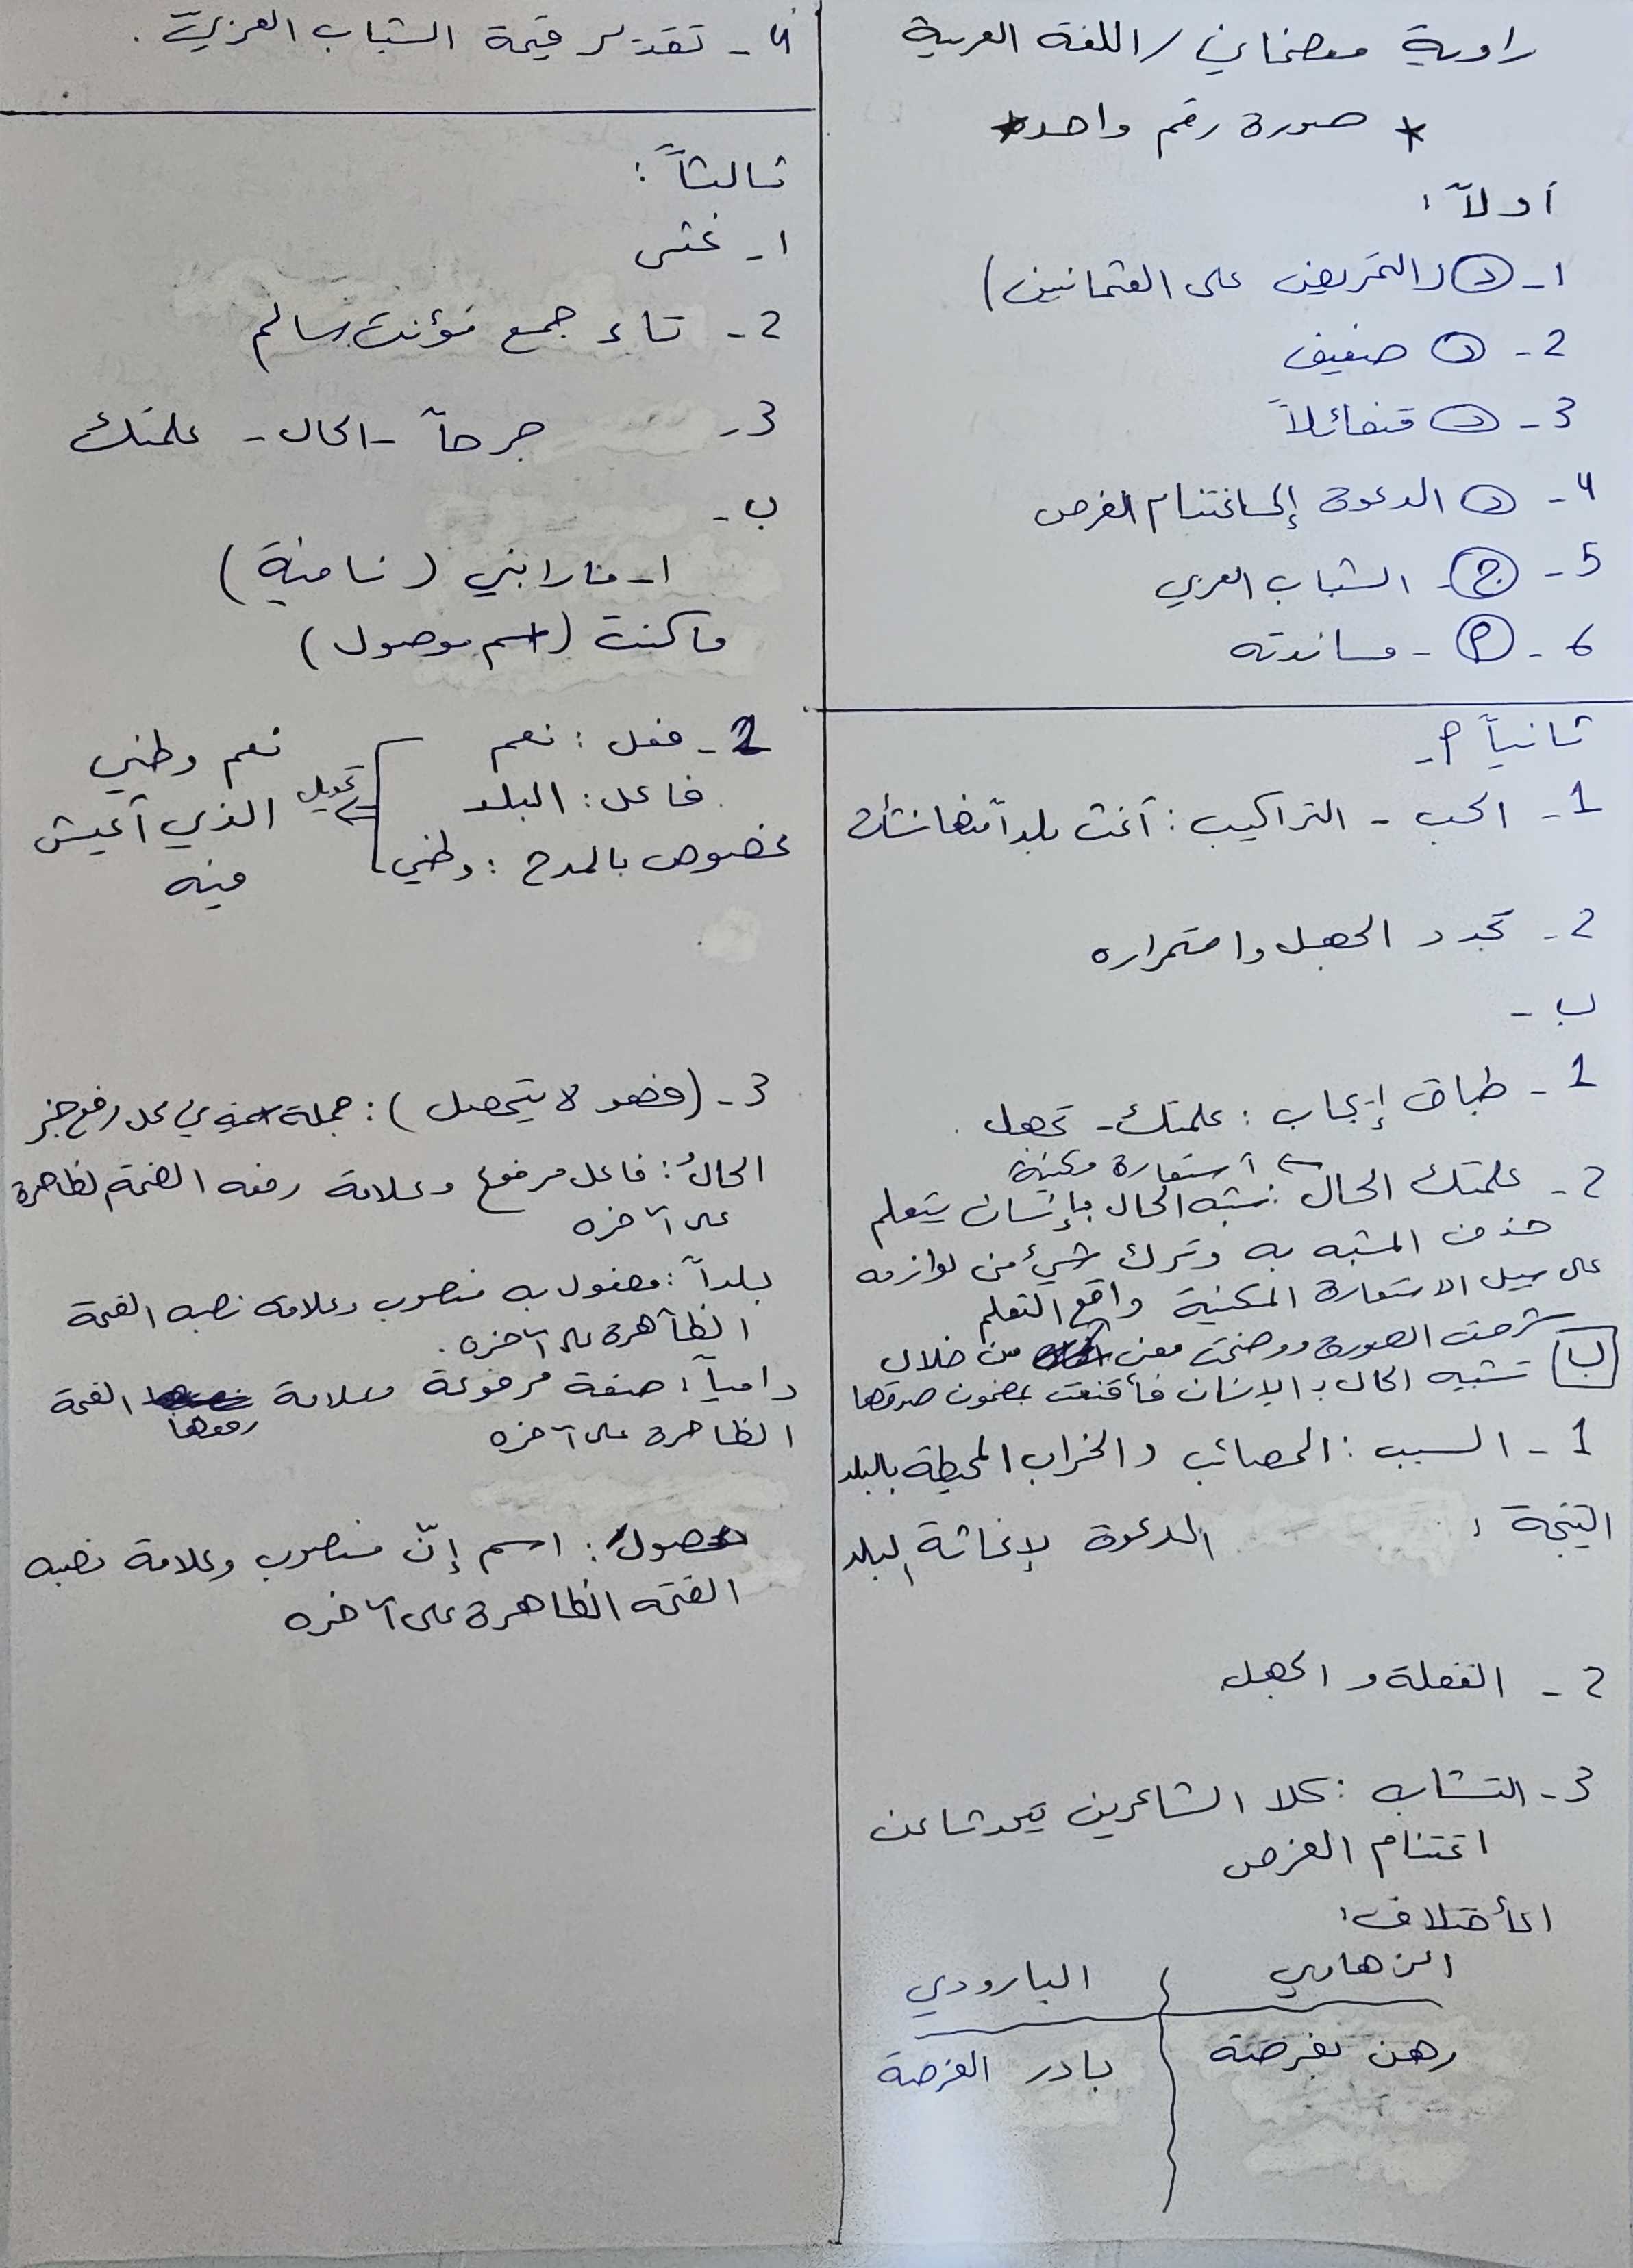 راوية معضماني / اللغة العربية
* صورة رقم واحد *
أولاً :
1 - د (التحريض على العثمانيين)
2 - د ضعيف
3 - د متفائلاً
4 - د الدعوة إلى اغتنام الفرص
5 - ج - الشباب العربي
6 - م - مساندته
ثانياً م -
1 - الحب - التراكيب : أغث بلداً منها نشأت
2 - تجدد الجهل واستمراره
ب -
1 - طباق إيجاب : علمتك - تجهل .
استعارة مكنية
2 - علمتك الحال : شبه الحال بإنسان يتعلم
حذف المشبه به وترك شيء من لوازمه
على سبيل الاستعارة المكنية
شرحت الصورة ووضحت معنى من خلال
ب تشبيه الحال بـ الإنسان فأقنعت بمضمون صدقها
1 - السبب : المصائب والخراب المحيطة بالبلد
النتيجة : الدعوة لإغاثة البلد
2 - الغفلة و الجهل
3 - التشابه : كلا الشاعرين يتحدثا عن
اغتنام الفرص
الأختلاف :
الزهاوي البارودي
رهن بفرصة بادر الفرصة
4 - تقدير قيمة الشباب العربيّ .
ثالثاً :
1 - غشى
2 - تاء جمع مؤنث سالم
3 - جرحاً - الحال - علمتك
ب -
1 - ما رابني (نافية)
ما كنت (اسم موصول)
2 - فعل : نعم
فاعل : البلد
مخصوص بالمدح : وطني
تحويل
نعم وطني
الذي أعيش
فيه
3 - (فهو لا يتحصل) : جملة اسمية في محل رفع خبر
الحالُ : فاعل مرفوع وعلامة رفعه الضمة لظاهرة
على آخره
بلداً : مفعول به منصوب وعلامة نصبه الفتحة
الظاهرة على آخره .
دامياً : صفة مرفوعة وعلامة رفعها الفتحة
الظاهرة على آخره
حصول : اسم إنّ منصوب وعلامة نصبه
الفتحه الظاهرة على آخره